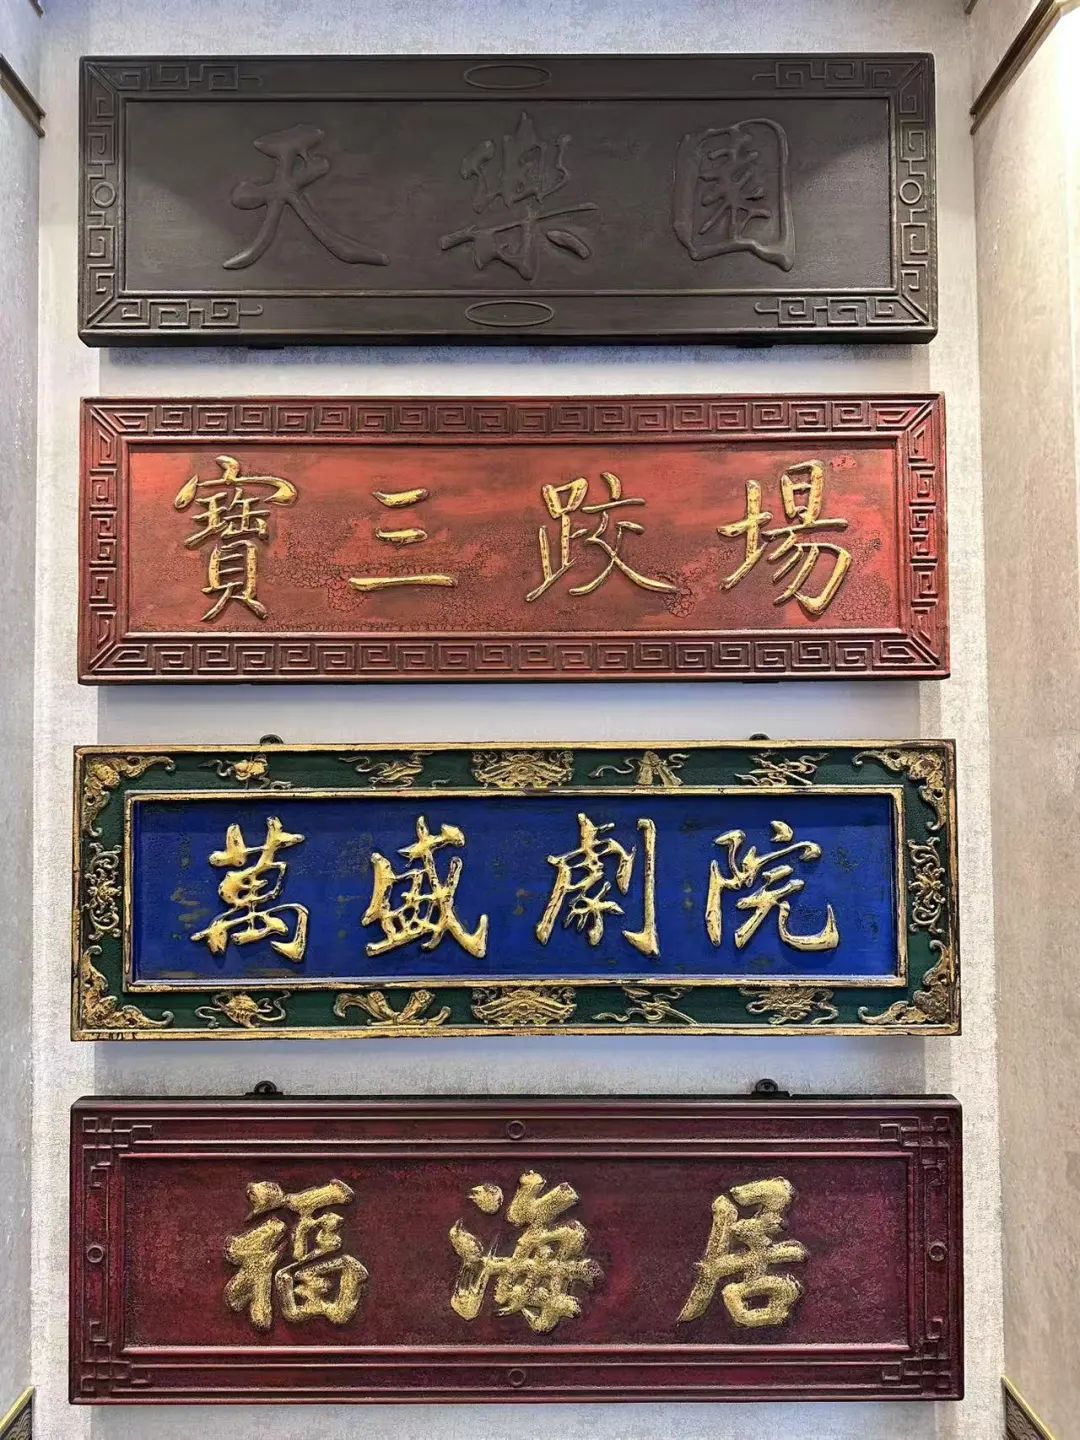 天樂園
寶三跤場
萬盛劇院
福海居